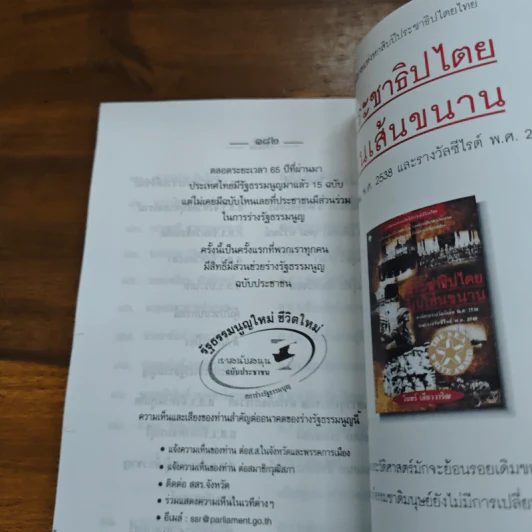 — ๑๘๒ —
ตลอดระยะเวลา 65 ปีที่ผ่านมา
ประเทศไทยมีรัฐธรรมนูญมาแล้ว 15 ฉบับ
แต่ไม่เคยมีฉบับไหนเลยที่ประชาชนมีส่วนร่วม
ในการร่างรัฐธรรมนูญ
ครั้งนี้เป็นครั้งแรกที่พวกเราทุกคน
มีสิทธิ์มีส่วนช่วยร่างรัฐธรรมนูญ
ฉบับประชาชน
รัฐธรรมนูญใหม่ ชีวิตใหม่
ฉบับประชาชน
สภาร่างรัฐธรรมนูญ
ความเห็นและเสียงของท่านสำคัญต่ออนาคตของร่างรัฐธรรมนูญนี้
• แจ้งความเห็นของท่าน ต่อส.ส.ในจังหวัดและพรรคการเมือง
• แจ้งความเห็นของท่าน ต่อสมาชิกวุฒิสภา
• ติดต่อ สสร.จังหวัด
• ร่วมแสดงความเห็นในเวทีต่างๆ
• อีเมล์ : ssr@parliament.go.th
ประชาธิปไตยไทย
ชาธิปไตย
เส้นขนาน
พ.ศ. 2538 และรางวัลซีไรต์ พ.ศ. 2
ชาธิปไตย
เส้นขนาน
วินทร์ เลียววาริณ
ะวัติศาสตร์มักจะย้อนรอยเดิมข
ธรรมชาติมนุษย์ยังไม่มีการเปลี่ย